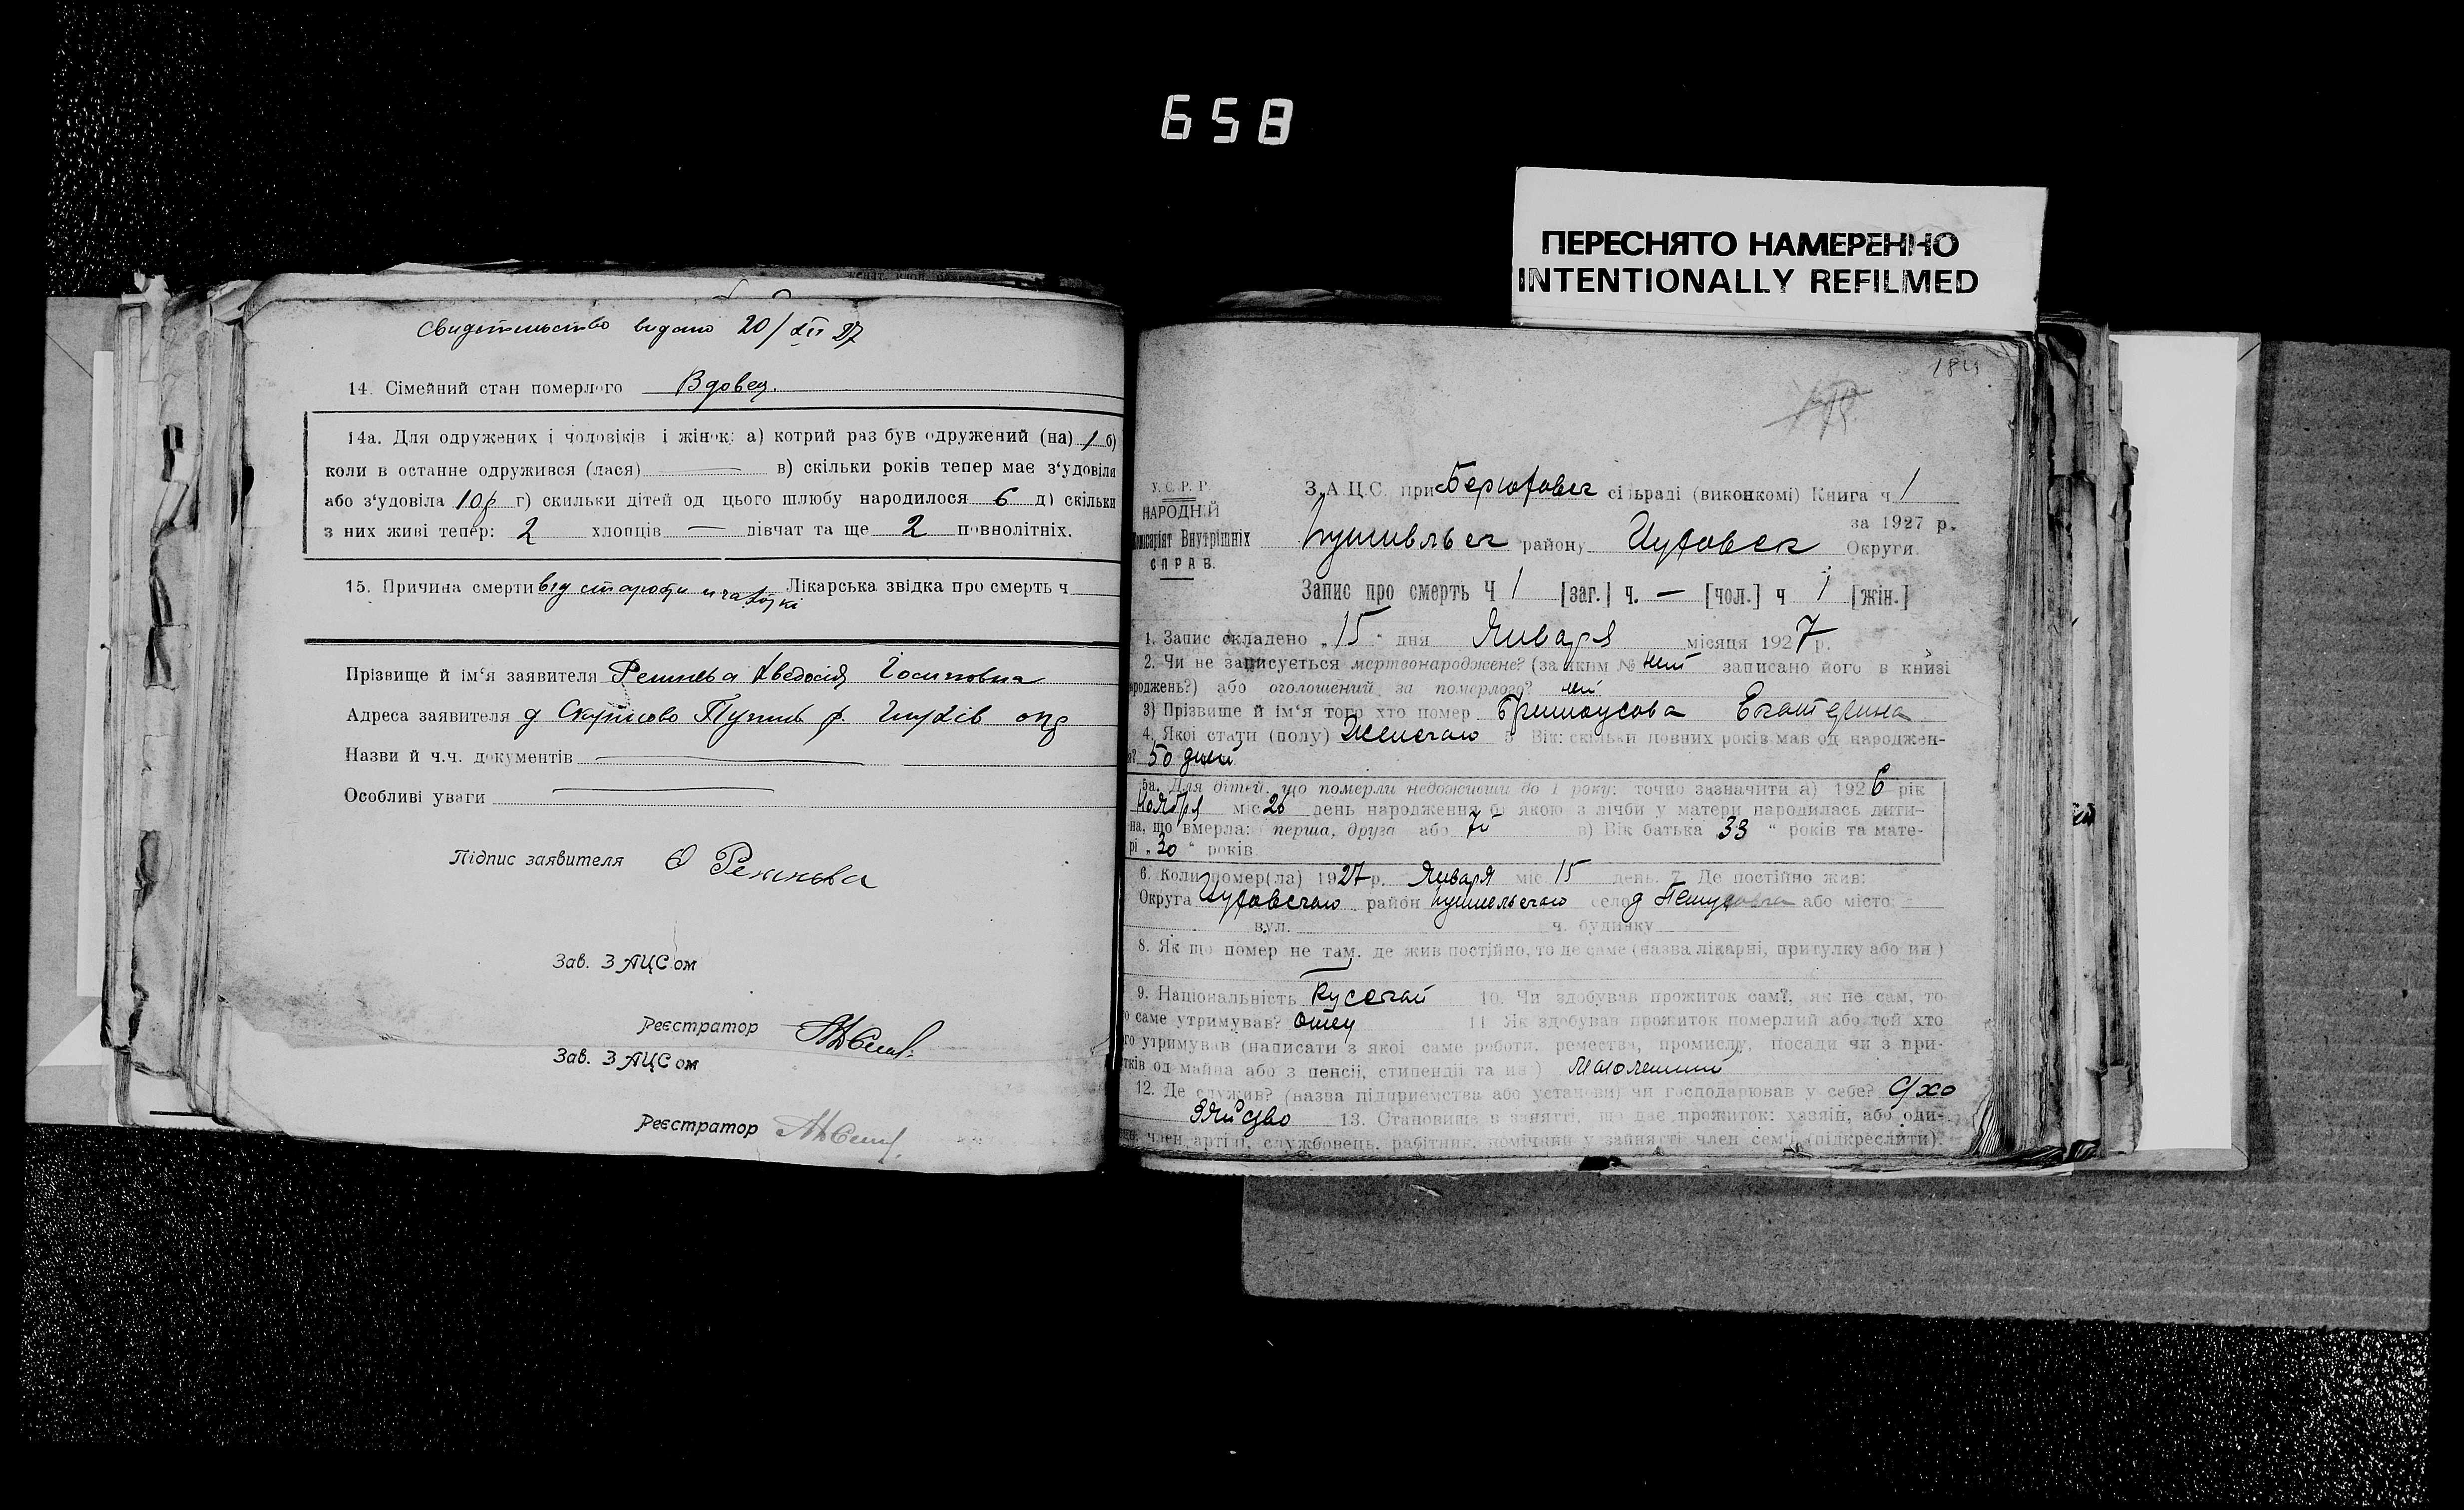 658
ПЕРЕСНЯТО НАМЕРЕННО
INTENTIONALLY REFILMED
Свидетельство видано 20/XII 27
14. Сімейний стан померлого Вдовец.
14а. Для одружених і чоловіків і жінок: а) котрий раз був одружений (на) 1 б)
коли в останнє одружився (лася) — в) скільки років тепер має з'удовіла
або з'удовіла 10 р г) скильки дітей од цього шлюбу народилося 6 д) скільки
з них живі тепер: 2 хлопців — дівчат та ще 2 повнолітніх.
15. Причина смерти від старости Лікарська звідка про смерть ч
Прізвище й ім'я заявителя
Адреса заявителя д Скуписово Путив р. Глухів окр
Назви й ч.ч. документів —
Особливі уваги —
Підпис заявителя
Зав. ЗАЦСом
Реєстратор
Зав. ЗАЦСом
Реєстратор
184
У.С.Р.Р.
НАРОДНІЙ
Комісаріят Внутрішніх
СПРАВ.
З.А.Ц.С. при сільраді (виконкомі) Книга ч 1
за 1927 р.
Путивльск району Глуховск Округи.
Запис про смерть Ч 1 [заг.] ч. — [чол.] ч 1 [жін.]
1. Запис складено „15" дня Января місяця 1927 р.
2. Чи не записується мертвонароджене? (за яким № нет записано його в книзі
народжень?) або оголошений за померлого? нет
3) Прізвище й ім'я того хто помер Екатерина
4. Якої стати (полу) Женскаго 5 Вік: скільки повних років мав од народжен-
ня? 50 дней
5а. Для дітей, що померли недоживши до 1 року: точно зазначити а) 1926 рік
Ноября міс 26 день народження б) якою з лічби у матери народилась дити-
на, що вмерла: перша, друга або 7й в) Вік батька 33 " років та мате-
рі „30" років
6. Коли помер(ла) 1927 р. Января міс 15 день. 7. Де постійно жив:
Округа Глуховскаго район Путивльскаго село д або місто
вул. ч. будинку
8. Як що помер не там, де жив постійно, то де саме (назва лікарні, притулку або ин)
—
9. Національність Русский 10. Чи здобував прожиток сам?, як не сам, то
хто саме утримував? Отец 11 Як здобував прожиток померлий або той хто
його утримував (написати з якої саме роботи, ремества, промислу, посади чи з при-
бутків од майна або з пенсії, стипендії та ин)
12. Де служив? (назва підприємства або установи) чи господарював у себе? с/хо
зяйство 13. Становище в занятті, що дає прожиток: хазяїн, або оди-
нак, член артіл, службовець, рабітник, помічний у зайнятті член сем'ї (підкреслити).